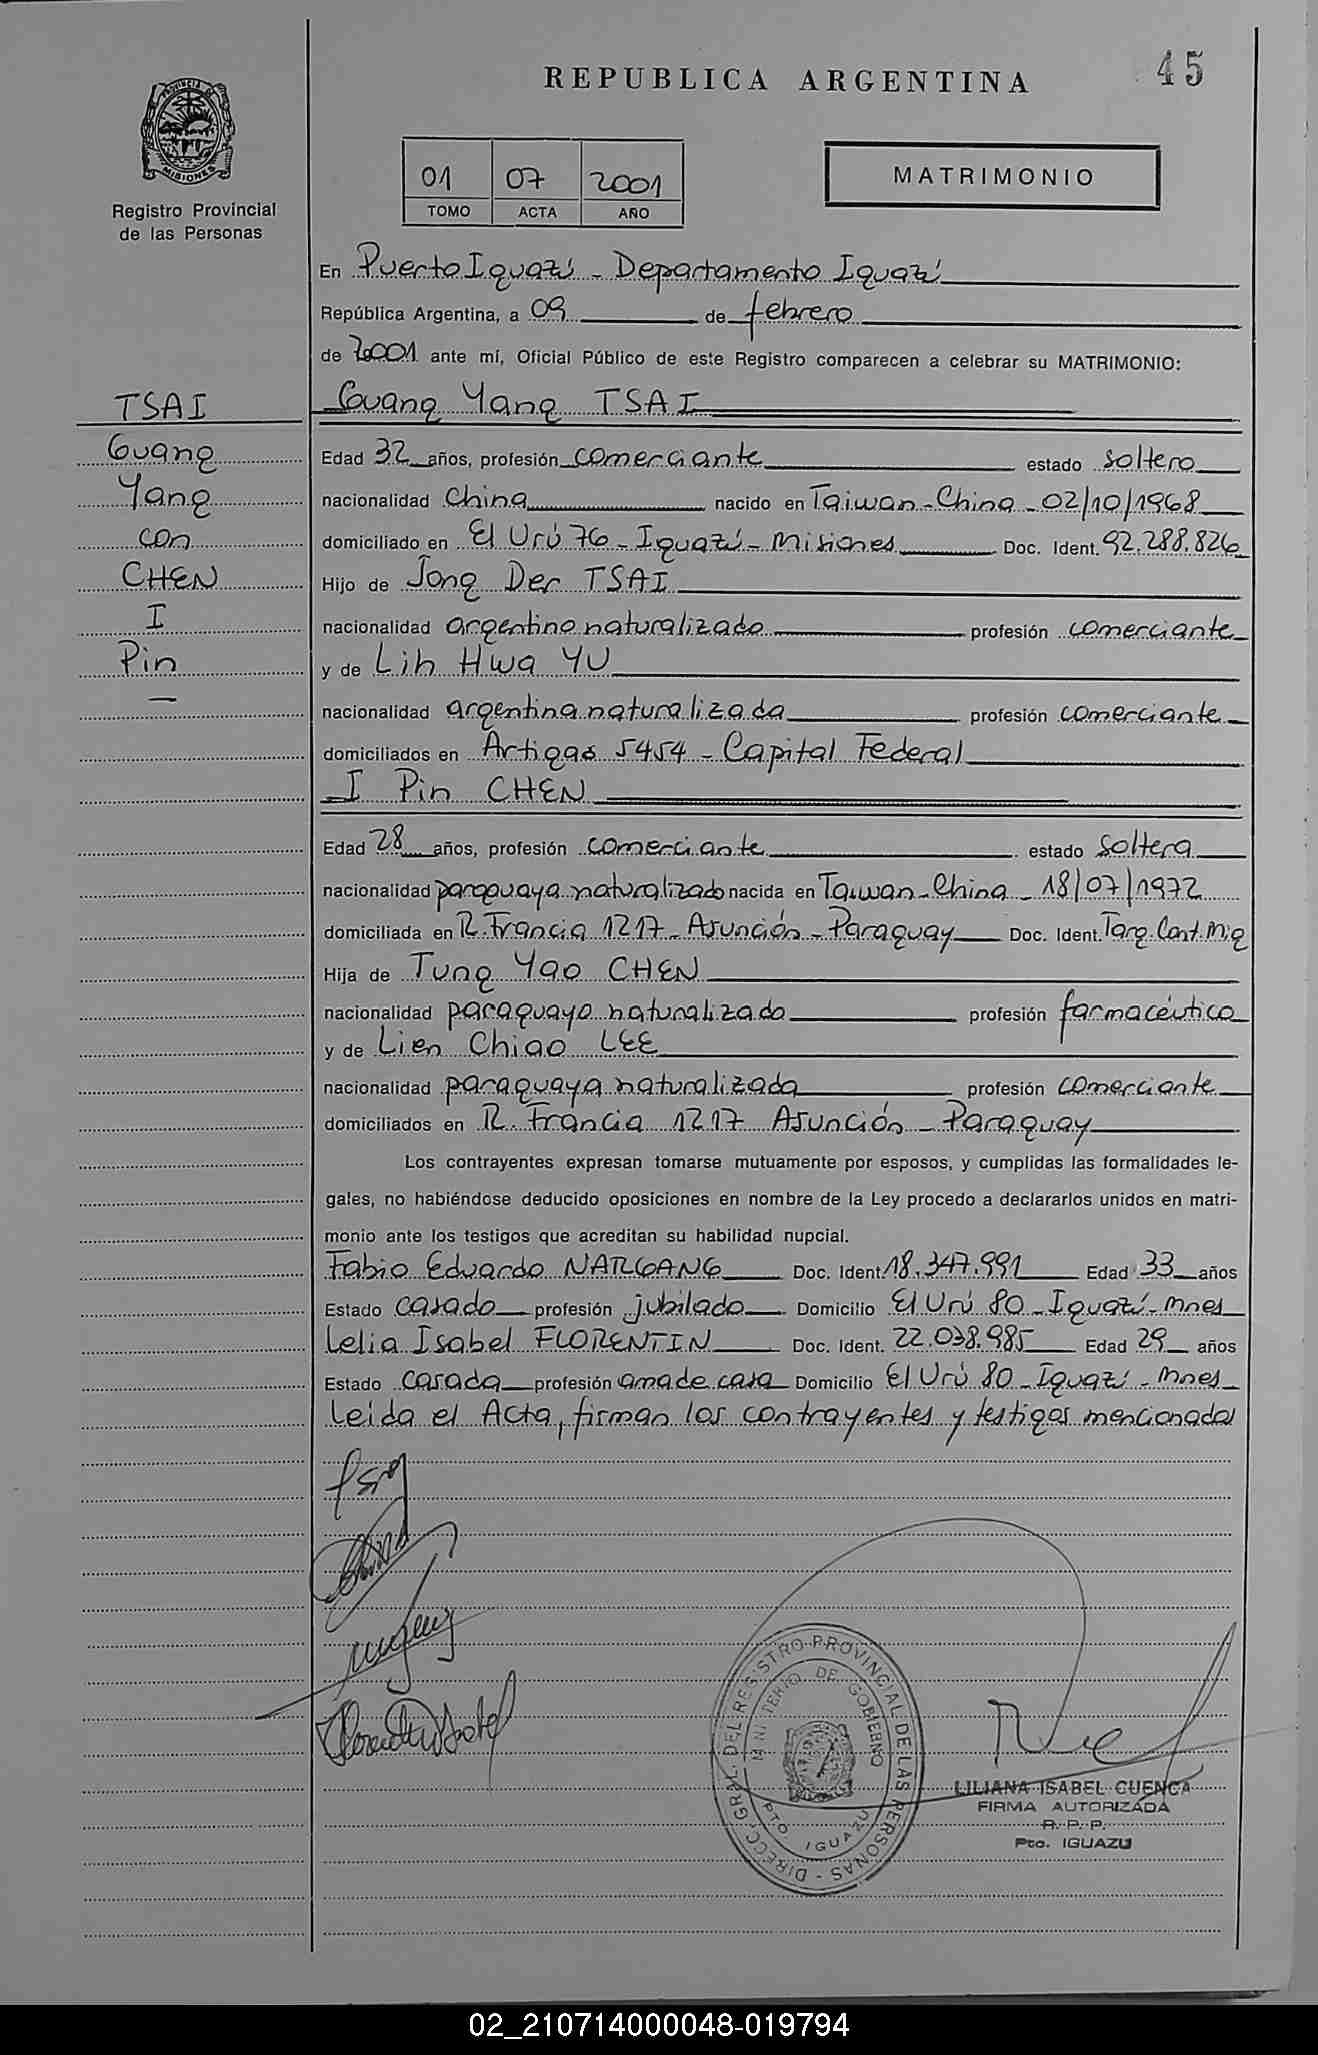 45
REPUBLICA ARGENTINA
PROVINCIA DE
MISIONES
Registro Provincial
de las Personas
01 07 2001
TOMO ACTA AÑO
MATRIMONIO
En Puerto Iguazú - Departamento Iguazú
República Argentina, a 09 de febrero
de 2001 ante mí, Oficial Público de este Registro comparecen a celebrar su MATRIMONIO:
TSAI
Guang
Yang
con
CHEN
I
Pin
—
Guang Yang TSAI
Edad 32 años, profesión comerciante estado soltero
nacionalidad China nacido en Taiwan - China - 02/10/1968
domiciliado en El Urú 76 - Iguazú - Misiones Doc. Ident. 92.288.826
Hijo de Jong Der TSAI
nacionalidad argentino naturalizado profesión comerciante
y de Lih Hwa YU
nacionalidad argentina naturalizada profesión comerciante
domiciliados en Artigas 5454 - Capital Federal
I Pin CHEN
Edad 28 años, profesión comerciante estado soltera
nacionalidad paraguaya naturalizado nacida en Taiwan - China - 18/07/1972
domiciliada en R. Francia 1217 - Asunción - Paraguay Doc. Ident. Targ. Cont. Mig
Hija de Tung Yao CHEN
nacionalidad paraguayo naturalizado profesión farmacéutico
y de Lien Chiao LEE
nacionalidad paraguaya naturalizada profesión comerciante
domiciliados en R. Francia 1217 Asunción - Paraguay
Los contrayentes expresan tomarse mutuamente por esposos, y cumplidas las formalidades le-
gales, no habiéndose deducido oposiciones en nombre de la Ley procedo a declararlos unidos en matri-
monio ante los testigos que acreditan su habilidad nupcial.
Fabio Eduardo NARGANG Doc. Ident. 18.347.991 Edad 33 años
Estado casado profesión jubilado Domicilio El Urú 80 - Iguazú - Mnes
Lelia Isabel FLORENTIN Doc. Ident. 22.038.985 Edad 29 años
Estado casada profesión ama de casa Domicilio El Urú 80 - Iguazú - Mnes
Leida el Acta, firman los contrayentes y testigos mencionados
DIRECC. GRAL. DEL REGISTRO PROVINCIAL DE LAS PERSONAS -
MINISTERIO DE GOBIERNO
PTO. IGUAZU
LILIANA ISABEL CUENCA
FIRMA AUTORIZADA
R. P. P.
Pto. IGUAZU
02_210714000048-019794